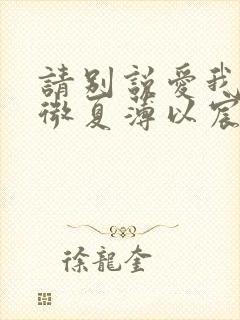 請別說愛我
微夏薄以宸
徐龍奎